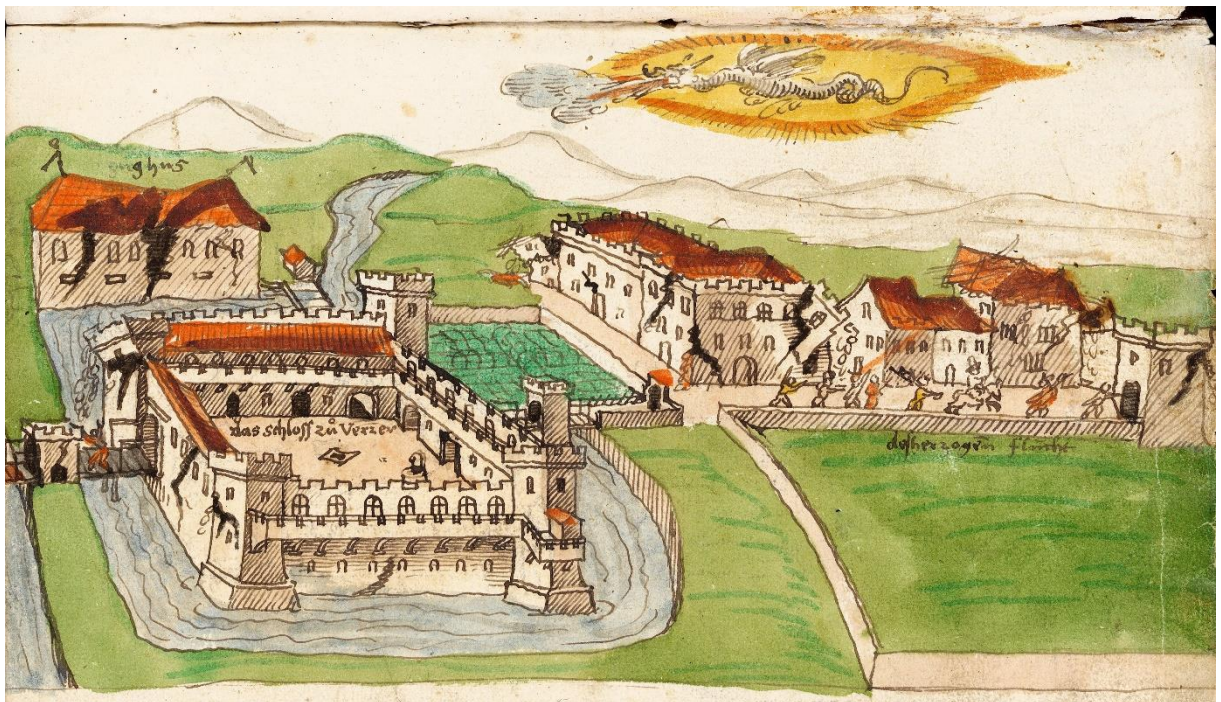 zughus
das schloss zů Verrer
des herzogen flucht